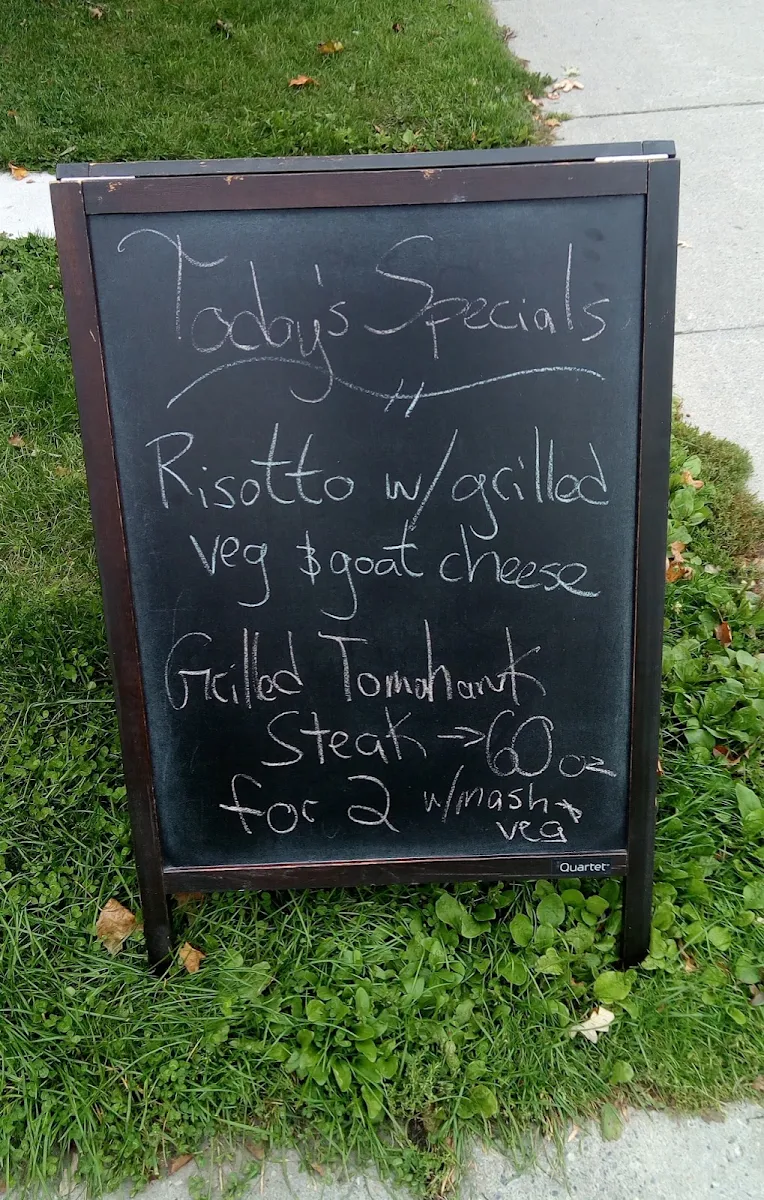 Today's Specials
Risotto w/grilled
veg & goat cheese
Grilled Tomahawk
Steak → 60 oz
for 2 w/mash +
veg
Quartet